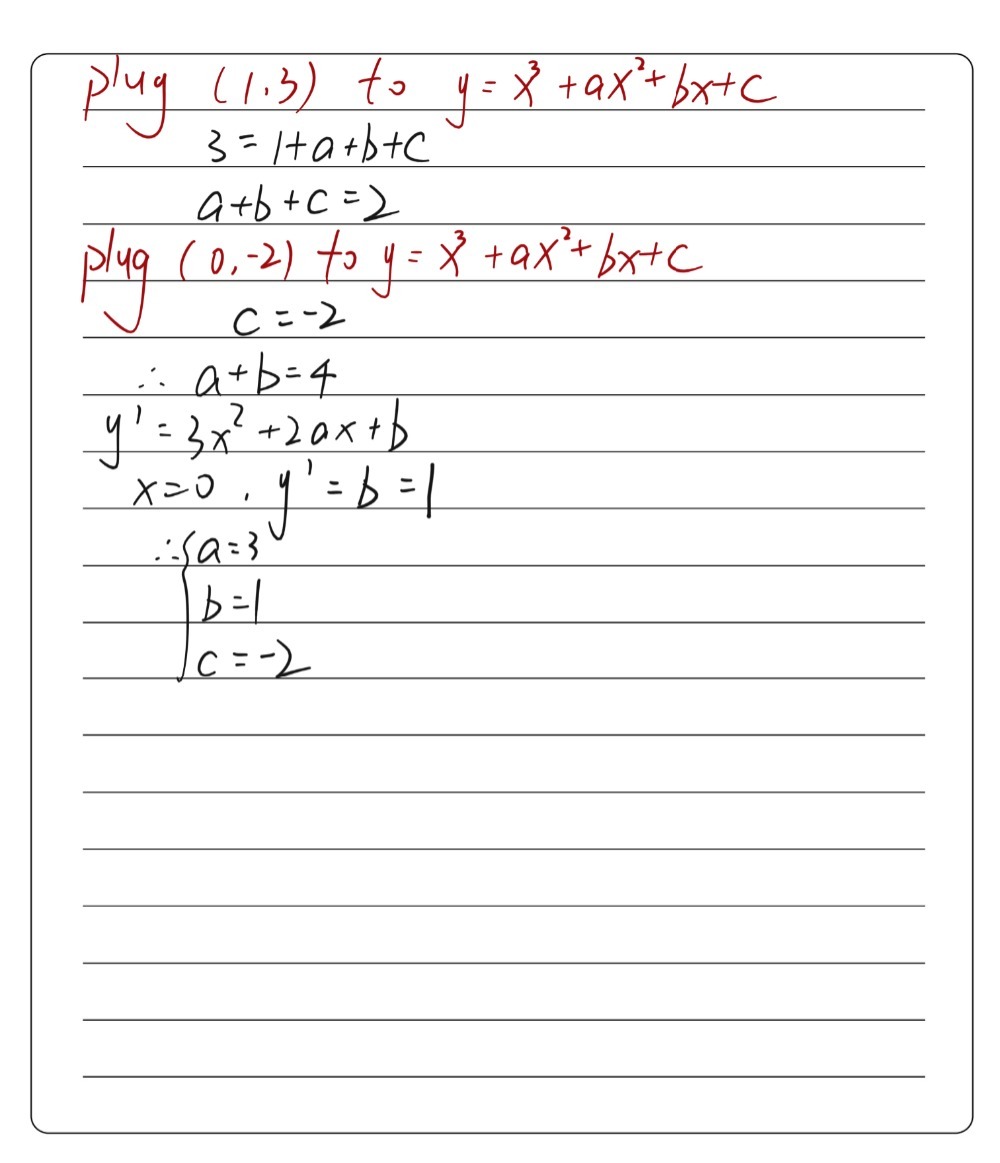 plug (1.3) to y = x³ + ax² + bx + c
3 = 1 + a + b + c
a + b + c = 2
plug (0, -2) to y = x³ + ax² + bx + c
c = -2
∴ a + b = 4
y' = 3x² + 2ax + b
x = 0 , y' = b = 1
∴ { a = 3
b = 1
c = -2